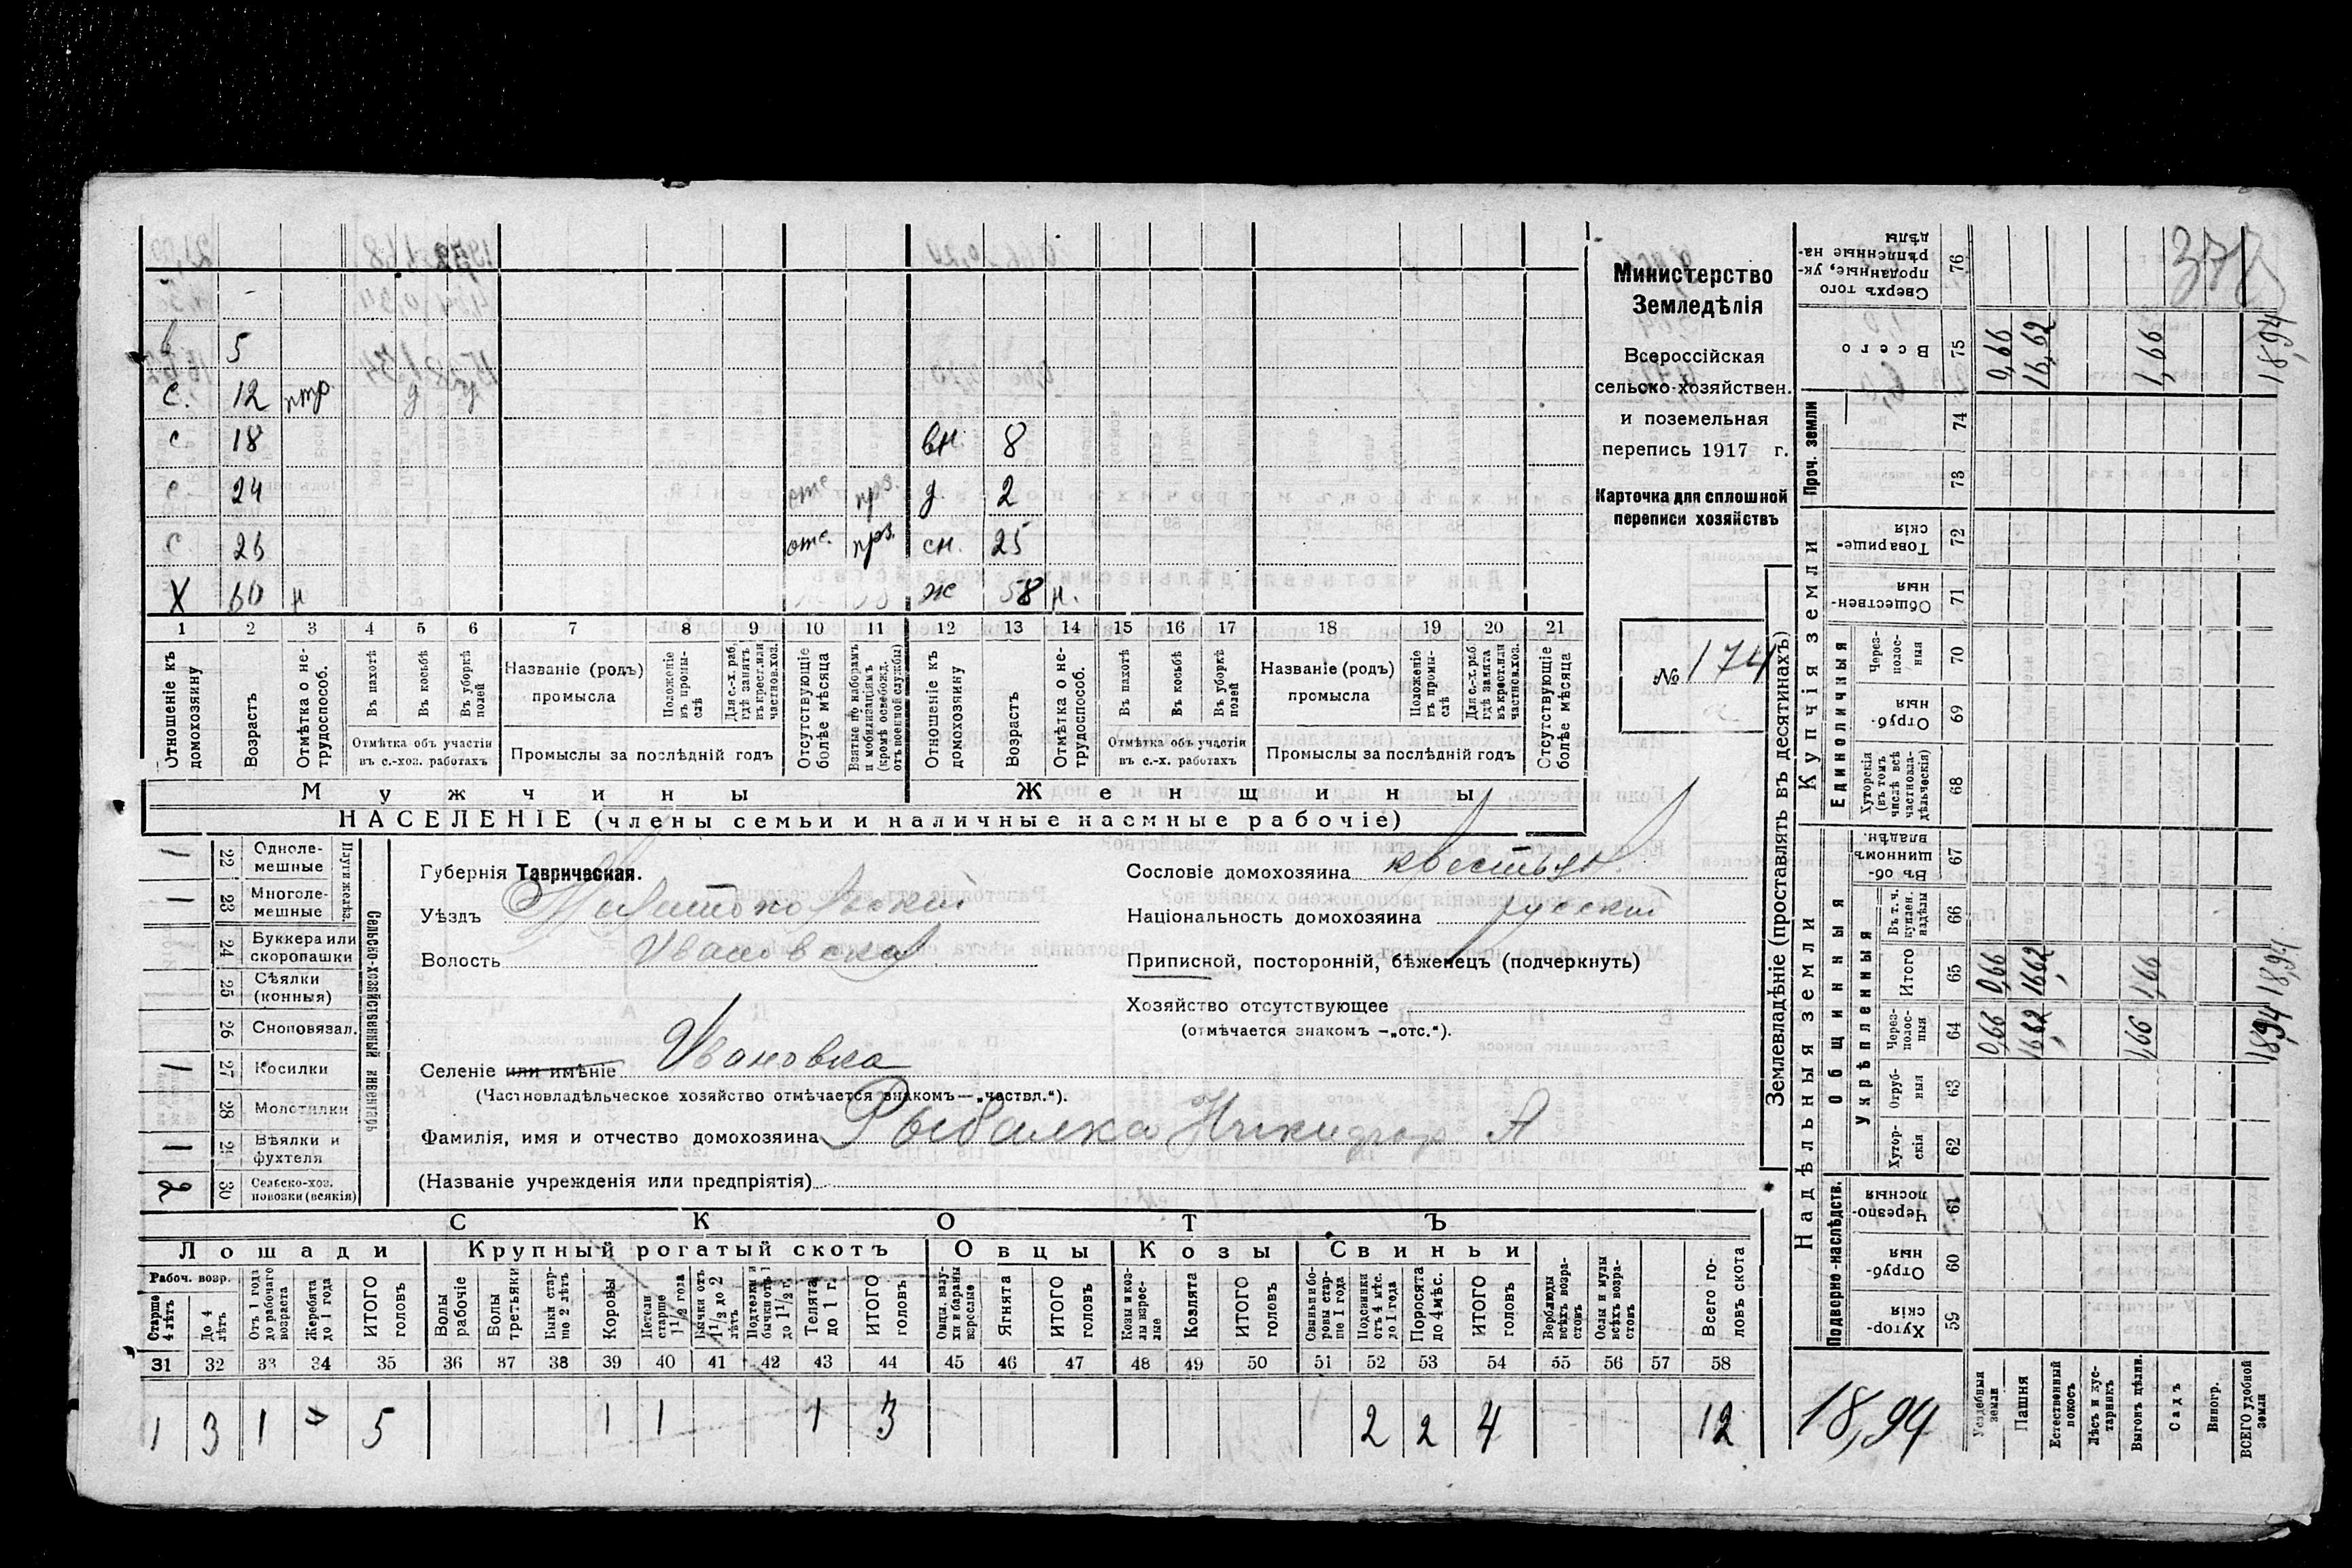 378
Министерство
Земледѣлія
Всероссійская
сельско-хозяйствен.
и поземельная
перепись 1917 г.
Карточка для сплошной
переписи хозяйствъ
№ 174
в 5
с. 12 птр. д д
с 18 вн. 8
с. 24 отс. прз. д. 2
с. 26 отс. прз. сн. 25
Х 60 н ж 58 н.
1 2 3 4 5 6 7 8 9 10 11 12 13 14 15 16 17 18 19 20 21
Отношеніе къ домохозяину
Возрастъ
Отмѣтка о не-трудоспособ.
Въ пахотѣ
Въ косьбѣ
Въ уборкѣ полей
Отмѣтка объ участіи въ с.-хоз. работахъ
Названіе (родъ) промысла
Положеніе въ промы-слѣ
Для с.-х. раб. гдѣ занятъ въ крест. или частнов. хоз.
Промыслы за послѣдній годъ
Отсутствующіе болѣе мѣсяца
Взятые по наборамъ и мобилизаціямъ (кромѣ освобожд. отъ военной службы)
Отношеніе къ домохозяину
Возрастъ
Отмѣтка о не-трудоспособ.
Въ пахотѣ
Въ косьбѣ
Въ уборкѣ полей
Отмѣтка объ участіи въ с.-х. работахъ
Названіе (родъ) промысла
Положеніе въ промы-слѣ
Для с.-х. раб. гдѣ занята въ крест. или частнов. хоз.
Промыслы за послѣдній годъ
Отсутствующіе болѣе мѣсяца
Мужчины Женщины
НАСЕЛЕНІЕ (члены семьи и наличные наемные рабочіе)
Сельско-хозяйственный инвентарь
1 22 Однолемешные
1 23 Многолемешные
24 Буккера или скоропашки
25 Сѣялки (конныя)
26 Сноповязал.
1 27 Косилки
28 Молотилки
1 29 Вѣялки и фухтеля
2 30 Сельско-хоз. повозки (всякія)
Губернія Таврическая.
Уѣздъ Мелитопольский
Волость Ивановская
Селеніе или имѣніе Ивановка
(Частновладѣльческое хозяйство отмѣчается знакомъ—„частвл.“).
Фамилія, имя и отчество домохозяина Рыбалка Никифор А
(Названіе учрежденія или предпріятія)
Сословіе домохозяина крестьян.
Національность домохозяина русский
Приписной, посторонній, бѣженецъ (подчеркнуть)
Хозяйство отсутствующее
(отмѣчается знакомъ —„отс.“).
СКОТЪ
Лошади Крупный рогатый скотъ Овцы Козы Свиньи
Рабоч. возр.
Старше 4 лѣтъ
До 4 лѣтъ
Отъ 1 года до рабочаго возраста
Жеребята до 1 года
ИТОГО головъ
Волы рабочіе
Волы третьяки
Быки стар-ше 2 лѣтъ
Коровы
Нетели старше 1 1/2 года
Бычки отъ 1 1/2 до 2 лѣтъ
Подтелки и бычки отъ 1 до 1 1/2 г.
Телята до 1 г.
ИТОГО головъ
Овцы, валу-хи и бараны взрослые
Ягнята
ИТОГО головъ
Козы и коз-лы взрос-лые
Козлята
ИТОГО головъ
Свиньи и бо-ровы стар-ше 1 года
Подсвинки отъ 4 мѣс. до 1 года
Поросята до 4 мѣс.
ИТОГО головъ
Верблюды всѣхъ возра-стовъ
Ослы и мулы всѣхъ возра-стовъ
Всего го-ловъ скота
31 32 33 34 35 36 37 38 39 40 41 42 43 44 45 46 47 48 49 50 51 52 53 54 55 56 57 58
1 3 1 5 1 1 1 3 2 2 4 12
Землевладѣніе (проставлять въ десятинахъ)
Надѣльныя земли
Купчія земли
Проч. земли
Подворно-наслѣдств.
Общинныя
Укрѣпленныя
Единоличныя
Хутор-скія 59
Отруб-ныя 60
Черезпо-лосныя 61
Хутор-скія 62
Отруб-ныя 63
Через-полос-ныя 64
Итого 65
Въ т. ч. куплен. надѣлы 66
Въ об-щинномъ владѣн. 67
Хуторскія (въ томъ числѣ всѣ частновла-дѣльческія) 68
Отруб-ныя 69
Через-полос-ныя 70
Обществен-ныя 71
Товарище-скія 72
73
74
Всего 75
Сверхъ того проданные, ук-рѣпленные на-дѣлы 76
Усадебныя земли 0,66 0,66 0,66
Пашня 16,62 16,62 16,62
Естественный покосъ
Лѣсъ и кус-тарникъ
Выгонъ цѣлин. 1,66 1,66 1,66
Садъ
Виногр.
ВСЕГО удобной земли 18,94 18,94 18,94
18,94